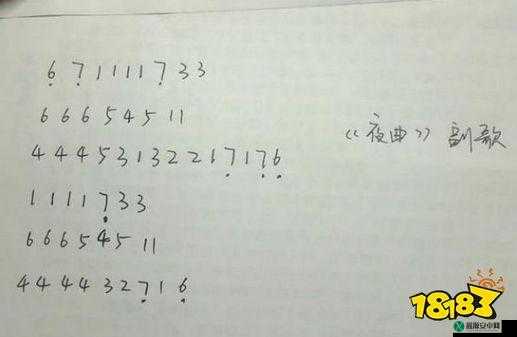 6̣ 7̣ 1 1 1 1 7̣ 3 3
6 6 6 5 4 5 1 1
《夜曲》 副歌
4 4 4 5 3 1 3 2 2 1 7̣ 1 7̣ 6̣
1 1 1 1 7̣ 3 3
6 6 6 5 4 5 1 1
4 4 4 4 3 2 7̣ 1 6̣
18183